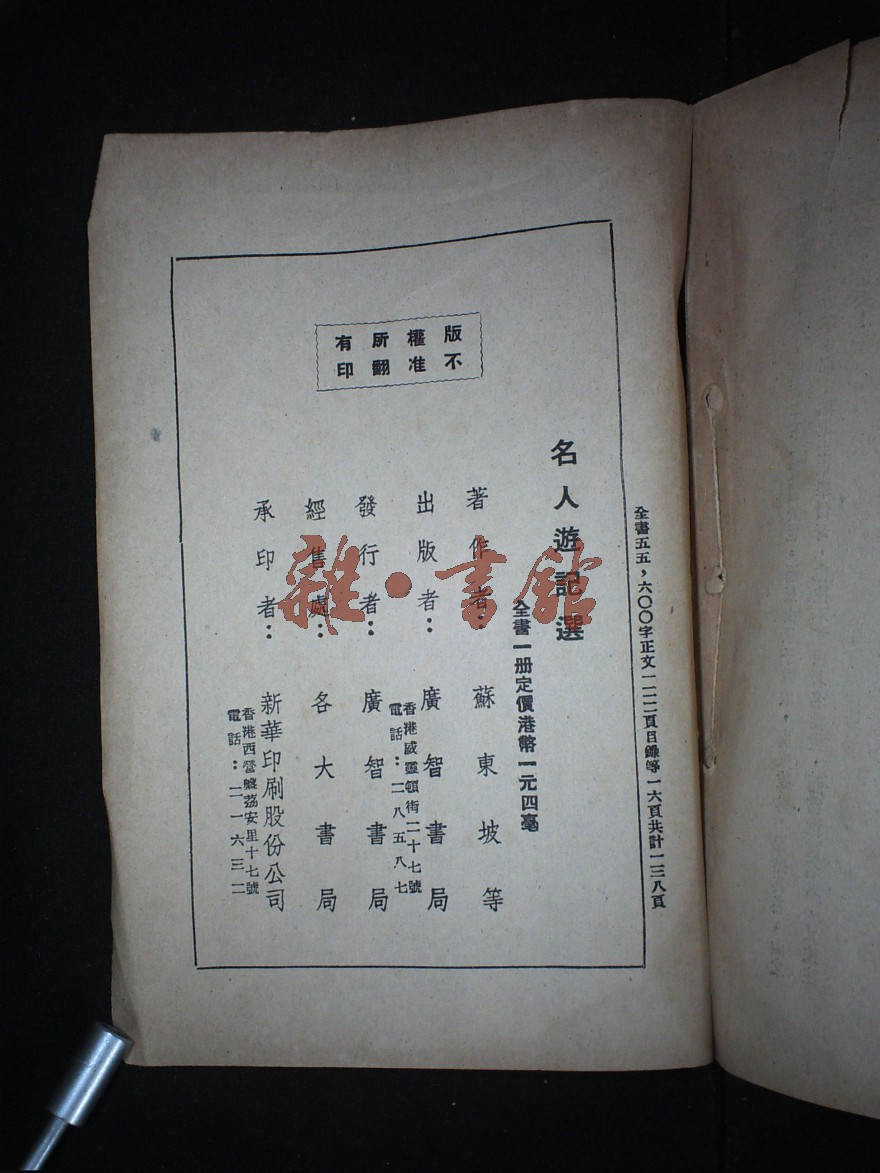 全書五五，六〇〇字正文一二二頁目錄等一六頁共計一三八頁
版權所有
不准翻印
名人遊記選
全書一册定價港幣一元四毫
著作者：蘇東坡等
出版者：廣智書局
香港威靈頓街二十七號
電話：二八五八七
發行者：廣智書局
經售處：各大書局
承印者：新華印刷股份公司
香港西營盤荔安里十七號
電話：二一六三二
雜·書館